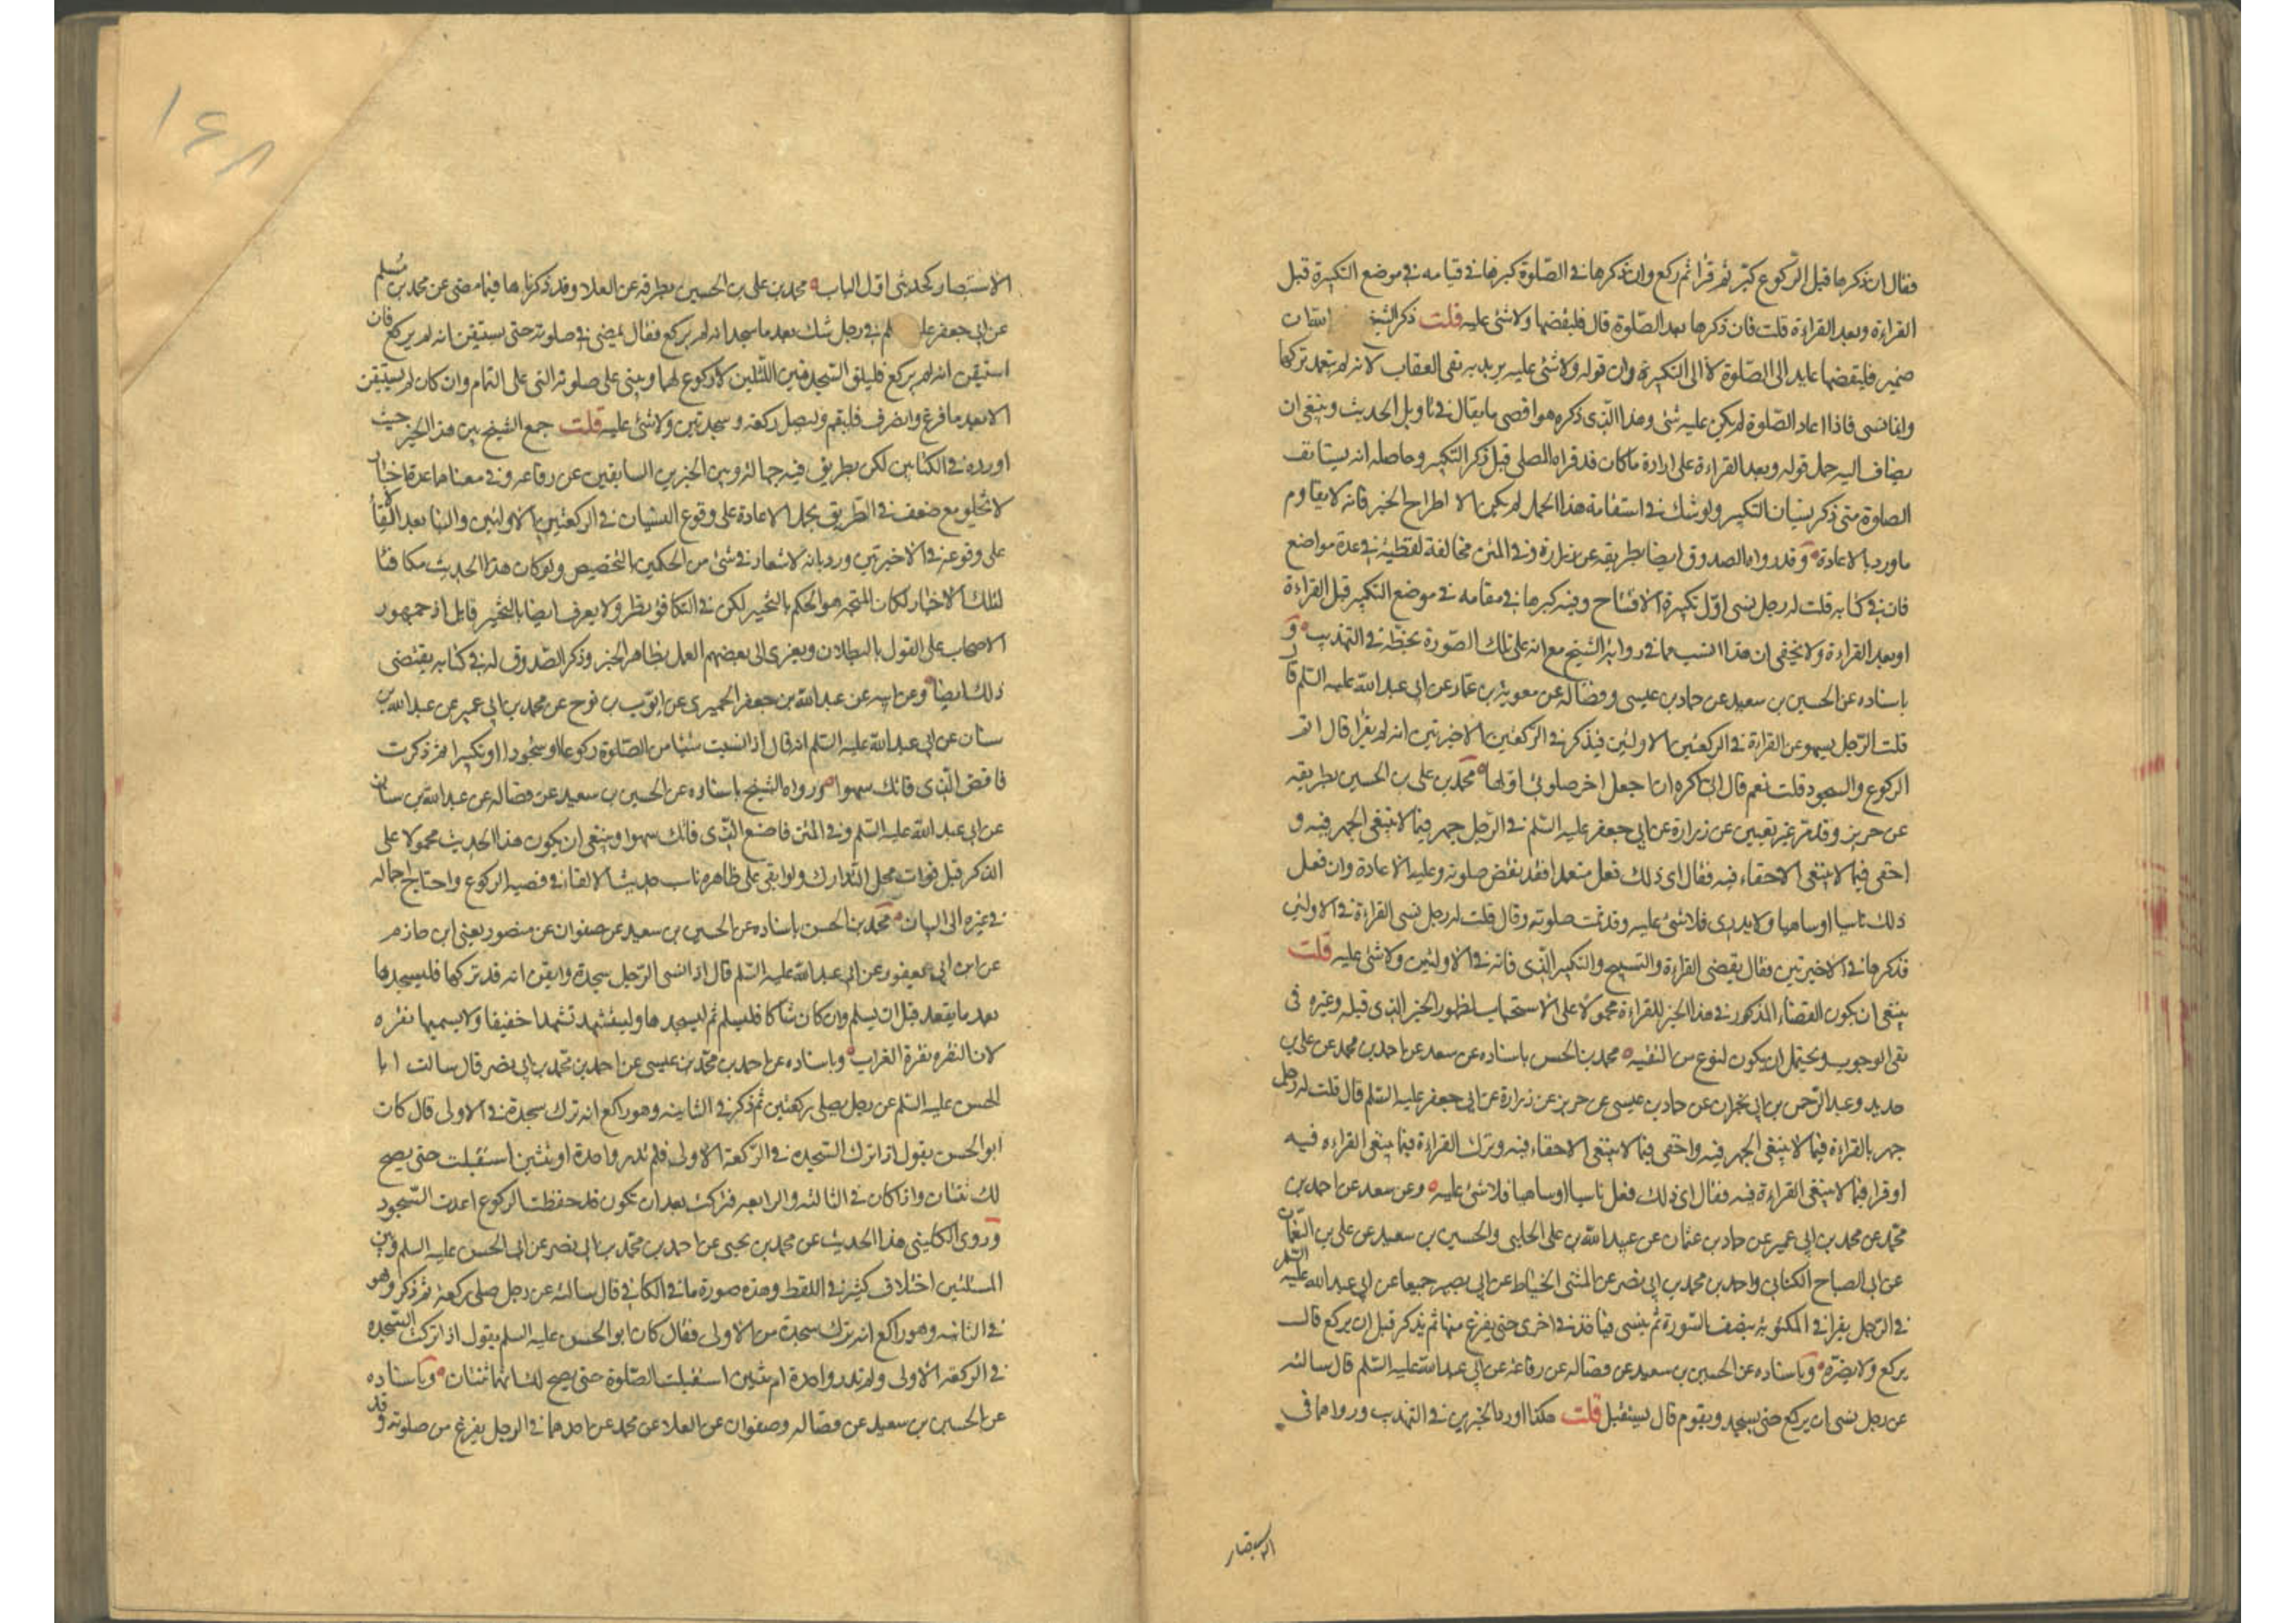 فقال ان ذكرها قبل الركوع كبر ثم قرا ثم ركع وان ذكرها في الصلوة كبرها في قيامه في موضع التكبيرة قبل
القراءة وبعد القراءة قلت فان ذكرها بعد الصلوة قال فليقضها ولا شئ عليه قلت ذكر الشيخ ان
ضمير فليقضها عايد الى الصلوة لا الى التكبيرة وان قوله ولا شئ عليه يريد به نفى العقاب لانه لم يتعمد تركها
وانما نسى فاذا اعاد الصلوة لم يكن عليه شئ وهذا الذى ذكره هو اقصى ما يقال في تاويل الحديث وينبغى ان
يضاف اليه حمل قوله وبعد القراءة على ارادة ما كان قد قراه المصلى قبل ذكر التكبير وحاصله انه يستانف
الصلوة متى ذكر نسيان التكبير ولو شك في استقامة هذا الحمل لم يكن الا اطراح الخبر فانه لا يقاوم
ما ورد بالاعادة وقد رواه الصدوق ايضا بطريقه عن زرارة وفي المتن مخالفة لفظية في عدة مواضع
فان في كتابه قلت له رجل نسى اول تكبيرة الافتتاح وفيه كبرها في مقامه في موضع التكبير قبل القراءة
او بعد القراءة ولا يخفى ان هذا انسب مما في رواية الشيخ مع انه على تلك الصورة بخطه في التهذيب و
باسناده عن الحسين بن سعيد عن حماد بن عيسى وفضالة عن معوية بن عمار عن ابى عبد الله عليه السلم قال
قلت الرجل يسهو عن القراءة في الركعتين الاولتين فيذكر في الركعتين الاخيرتين انه لم يقرا قال اتم
الركوع والسجود قلت نعم قال انى اكره ان اجعل اخر صلوتى اولها محمد بن على بن الحسين بطريقه
عن حريز وقد مر غير بعيد عن زرارة عن ابى جعفر عليه السلم في الرجل جهر فيما لا ينبغى الجهر فيه و
اخفى فيما لا ينبغى الاخفاء فيه فقال اى ذلك فعل متعمدا فقد نقض صلوته وعليه الاعادة وان فعل
ذلك ناسيا او ساهيا ولا يدرى فلا شئ عليه وقد تمت صلوته وقال قلت له رجل نسى القراءة في الاولتين
فذكرها في الاخيرتين فقال يقضى القراءة والتسبيح والتكبير الذى فاته في الاولتين ولا شئ عليه قلت
ينبغى ان يكون القضاء المذكور في هذا الخبر للقراءة محمولا على الاستحباب لظهور الخبر الذى قبله وغيره فى
نفى الوجوب ويحتمل ان يكون لنوع من التقيه محمد بن الحسن باسناده عن سعد عن احمد بن محمد عن على بن
حديد وعبد الرحمن بن ابى نجران عن حماد بن عيسى عن حريز عن زرارة عن ابى جعفر عليه السلم قال قلت له رجل
جهر بالقراءة فيما لا ينبغى الجهر فيه واخفى فيما لا ينبغى الاخفاء فيه وترك القراءة فيما ينبغى القراءه فيه
او قرا فيما لا ينبغى القراءة فيه فقال اى ذلك فعل ناسيا او ساهيا فلا شئ عليه وعن سعد عن احمد بن
محمد عن محمد بن ابى عمير عن حماد بن عثمان عن عبيد الله بن على الحلبى والحسين بن سعيد عن على بن النعمان
عن ابى الصباح الكنانى واحمد بن محمد بن ابى نصر عن المثنى الخياط عن ابى بصير جميعا عن ابى عبد الله عليه السلم
في الرجل يقرا في المكتوبة بنصف السورة ثم ينسى فياخذ في اخرى حتى يفرغ منها ثم يذكر قبل ان يركع قال
يركع ولا يضره وباسناده عن الحسين بن سعيد عن فضاله عن رفاعة عن ابى عبد الله عليه السلم قال سالته
عن رجل نسى ان يركع حتى يسجد ويقوم قال يستقبل قلت هكذا اورد الخبرين في التهذيب ورواهما فى
الاستبصار
١٦٨
الاستبصار كحديثى اول الباب محمد بن على بن الحسين بطرقه عن العلا وقد ذكرناها فيما مضى عن محمد بن مسلم
عن ابى جعفر عليه لم في رجل شك بعد ما سجد انه لم يركع فقال يمضى في صلوته حتى يستيقن انه لم يركع فان
استيقن انه لم يركع فليلق السجدتين اللتين لا ركوع لهما ويبنى على صلوته التى على التمام وان كان لم يستيقن
الا بعد ما فرغ وانصرف فليقم وليصل ركعة وسجدتين ولا شئ عليه قلت جمع الشيخ بين هذا الخبر حيث
اورده في الكتابين لكن بطريق فيه جهالة وبين الخبرين السابقين عن رفاعه وفي معناهما عدة اخبار
لا تخلو مع ضعف في الطريق بحمل الاعادة على وقوع النسيان في الركعتين الاولتين والبنا بعد الالقاء
على وقوعه في الاخيرتين ورد بانه لا اشعار في شئ من الحكمين بالتخصيص ولو كان هذا الحديث مكافئا
لتلك الاخبار لكان المتجه هو الحكم بالتخيير لكن في التكافؤ نظر ولا يعرف ايضا بالتخيير قايل اذ جمهور
الاصحاب على القول بالبطلان ويعزى الى بعضهم العمل بظاهر الخبر وذكر الصدوق له في كتابه يقتضى
ذلك ايضا وعن ابيه عن عبد الله بن جعفر الحميرى عن ايوب بن نوح عن محمد بن ابى عمير عن عبد الله بن
سنان عن ابى عبد الله عليه السلم انه قال اذا نسيت شيئا من الصلوة ركوعا او سجودا او تكبيرا ثم ذكرت
فاقض الذى فاتك سهوا ورواه الشيخ باسناده عن الحسين بن سعيد عن فضاله عن عبد الله بن سنان
عن ابى عبد الله عليه السلم وفي المتن فاصنع الذى فاتك سهوا وينبغى ان يكون هذا الحديث محمولا على
الذكر قبل فوات محل التدارك ولو ابقى على ظاهره ناب حديث الالقاء في قضية الركوع واحتاج اجماله
في غيره الى البيان محمد بن الحسن باسناده عن الحسين بن سعيد عن صفوان عن منصور يعنى ابن حازم
عن ابن ابى يعفور عن ابى عبد الله عليه السلم قال اذا نسى الرجل سجدة وايقن انه قد تركها فليسجدها
بعد ما يقعد قبل ان يسلم وان كان شاكا فليسلم ثم ليسجدها وليتشهد تشهدا خفيفا ولا يسميها نقره
لان النقره نقرة الغراب وباسناده عن احمد بن محمد بن عيسى عن احمد بن محمد بن ابى نصر قال سالت ابا
الحسن عليه السلم عن رجل يصلى ركعتين ثم ذكر في الثانية وهو راكع انه ترك سجدة في الاولى قال كان
ابو الحسن يقول اذا ترك السجده في الركعة الاولى فلم تدر واحدة او ثنتين استقبلت حتى يصح
لك ثنتان واذا كان في الثالثه والرابعه فتركت بعد ان تكون قد حفظت الركوع اعدت السجود
وروى الكلينى هذا الحديث عن محمد بن يحيى عن احمد بن محمد بن ابى نصر عن ابى الحسن عليه السلم وبين
المتنين اختلاف كثير في اللفظ وهذه صورة ما في الكافي قال سالته عن رجل صلى ركعة ثم ذكر وهو
في الثانيه وهو راكع انه ترك سجدة من الاولى فقال كان ابو الحسن عليه السلم يقول اذا تركت السجده
في الركعة الاولى ولم تدر واحدة ام ثنتين استقبلت الصلوة حتى يصح لك انهما ثنتان وباسناده
عن الحسين بن سعيد عن فضاله وصفوان عن العلا عن محمد عن احدهما في الرجل يفرغ من صلوته وقد